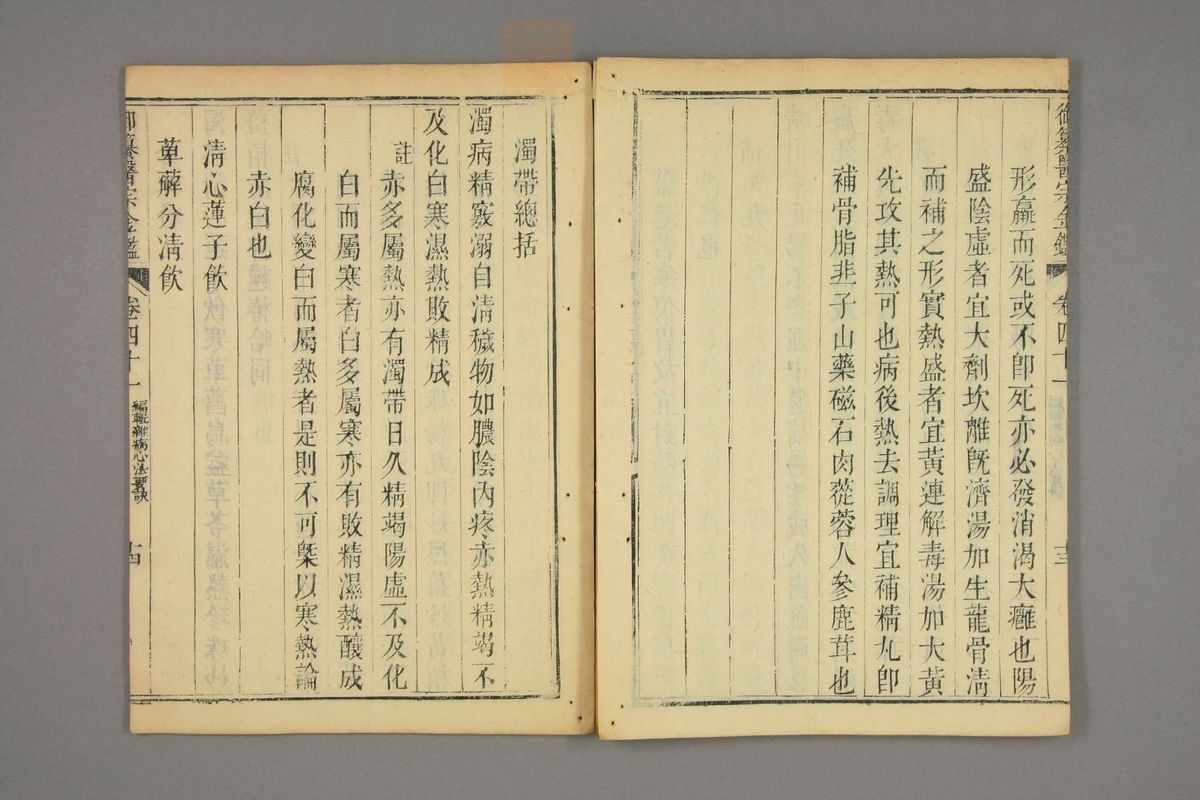 御纂醫宗金鑑 卷四十一 十三
形羸而死或不卽死亦必發消渴大癰也陽
盛陰虛者宜大劑坎離旣濟湯加生龍骨淸
而補之形實熱盛者宜黃連解毒湯加大黃
先攻其熱可也病後熱去調理宜補精丸卽
補骨脂韭子山藥磁石肉蓯蓉人參鹿茸也
濁帶總括
濁病精竅溺自淸穢物如膿陰內疼赤熱精竭不
及化白寒濕熱敗精成
註
赤多屬熱亦有濁帶日久精竭陽虛不及化
白而屬寒者白多屬寒亦有敗精濕熱釀成
腐化變白而屬熱者是則不可槩以寒熱論
赤白也
淸心蓮子飮
萆薢分淸飮
御纂醫宗金鑑 卷四十一 編輯雜病心法要訣 十四